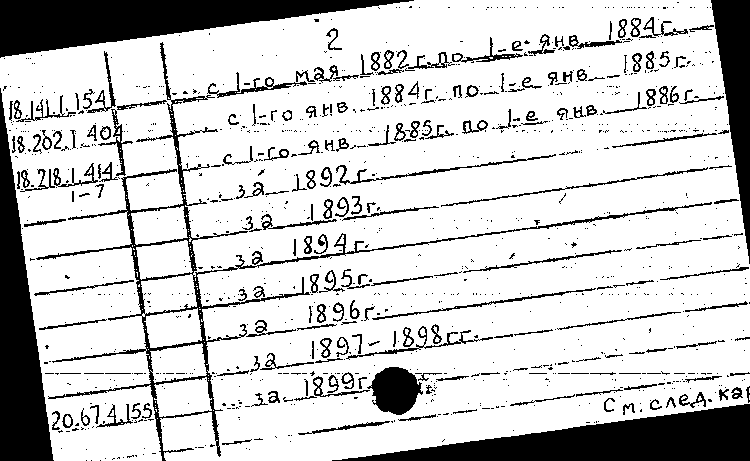 2
18.141.1.154 ... с 1-го мая 1882 г. по 1-е янв. 1884 г.
18.202.1.404 ... с 1-го янв. 1884 г. по 1-е янв. 1885 г.
18.218.1.414 ... с 1-го янв. 1885 г. по 1-е янв. 1886 г.
1-7 ... за 1892 г.
... за 1893 г.
... за 1894 г.
... за 1895 г.
... за 1896 г.
... за 1897-1898 гг.
20.67.4.155 ... за 1899 г.
См. след.